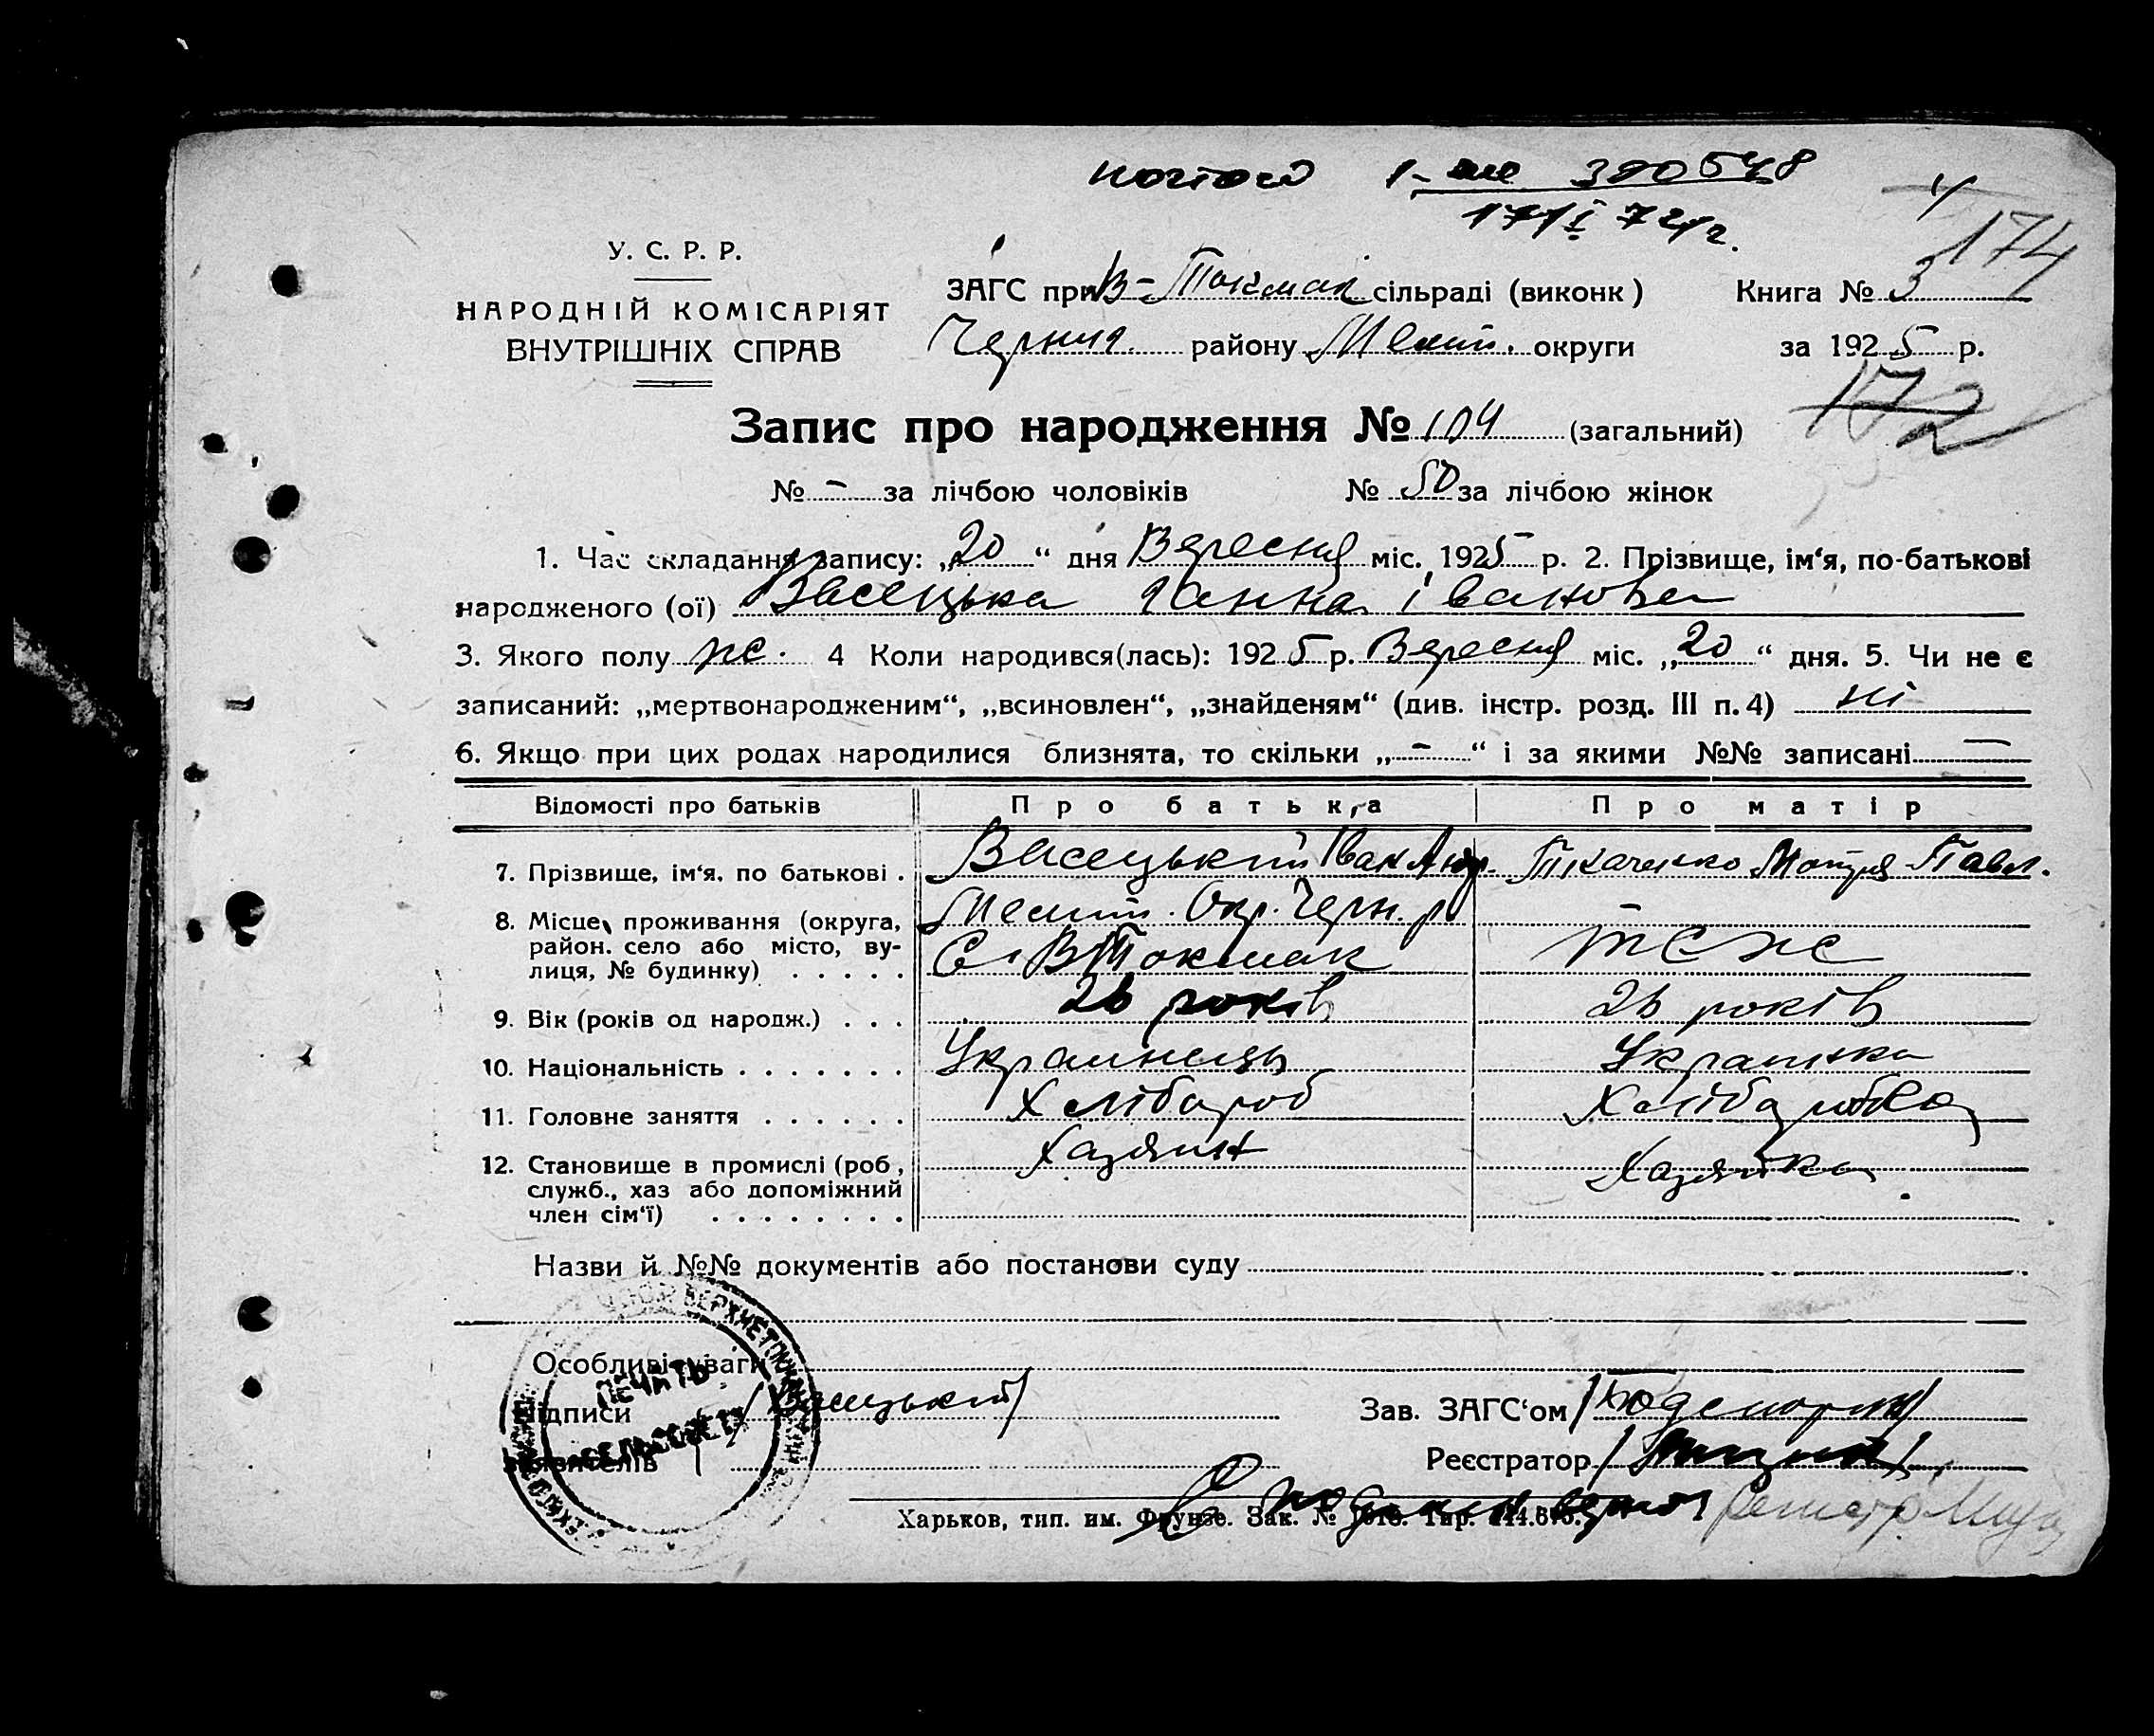 повтор 390548
17/I 72 г.
174
У. С. Р. Р.
НАРОДНІЙ КОМІСАРІЯТ
ВНУТРІШНІХ СПРАВ
ЗАГС при В-Токмак сільраді (виконк) Книга № 3
Черниг. району Мелит. округи за 1925 р.
172
Запис про народження № 104 (загальний)
№ - за лічбою чоловіків № 50 за лічбою жінок
1. Час складання запису: „20“ дня Вересня міс. 1925 р. 2. Прізвище, ім‘я, по-батькові
народженого (ої) Васецька Ганна Івановна
3. Якого полу ж. 4 Коли народився(лась): 1925 р. Вересня міс. „20“ дня. 5. Чи не є
записаний: „мертвонародженим“, „всиновлен“, „знайденям“ (див. інстр. розд. III п. 4) ні
6. Якщо при цих родах народилися близнята, то скільки „-“ і за якими №№ записані —
Відомості про батьків Про батька Про матір
7. Прізвище, ім‘я, по батькові . Васецький Іван Анд. Ткаченко Мотря Павл.
8. Місце проживання (округа, Мелит. Окр. Черн. р
район. село або місто, ву-
лиця, № будинку) . . . . . С. ВТокмак теж
9. Вік (років од народж.) . . . 26 років 26 років
10. Національність . . . . . . . Украинець Украінка
11. Головне заняття . . . . . . Хлібороб Хліборобка
12. Становище в промислі (роб, Хазяин Хазяйка
служб., хаз або допоміжний
член сім‘ї) . . . . . . . .
Назви й №№ документів або постанови суду
Особливі уваги
ПЕЧАТЬ
СЕЛЬСОВЕТА
Підписи /Васецький/ Зав. ЗАГС‘ом
заявителів Реєстратор
Харьков, тип. им. Фрунзе. Зак. №